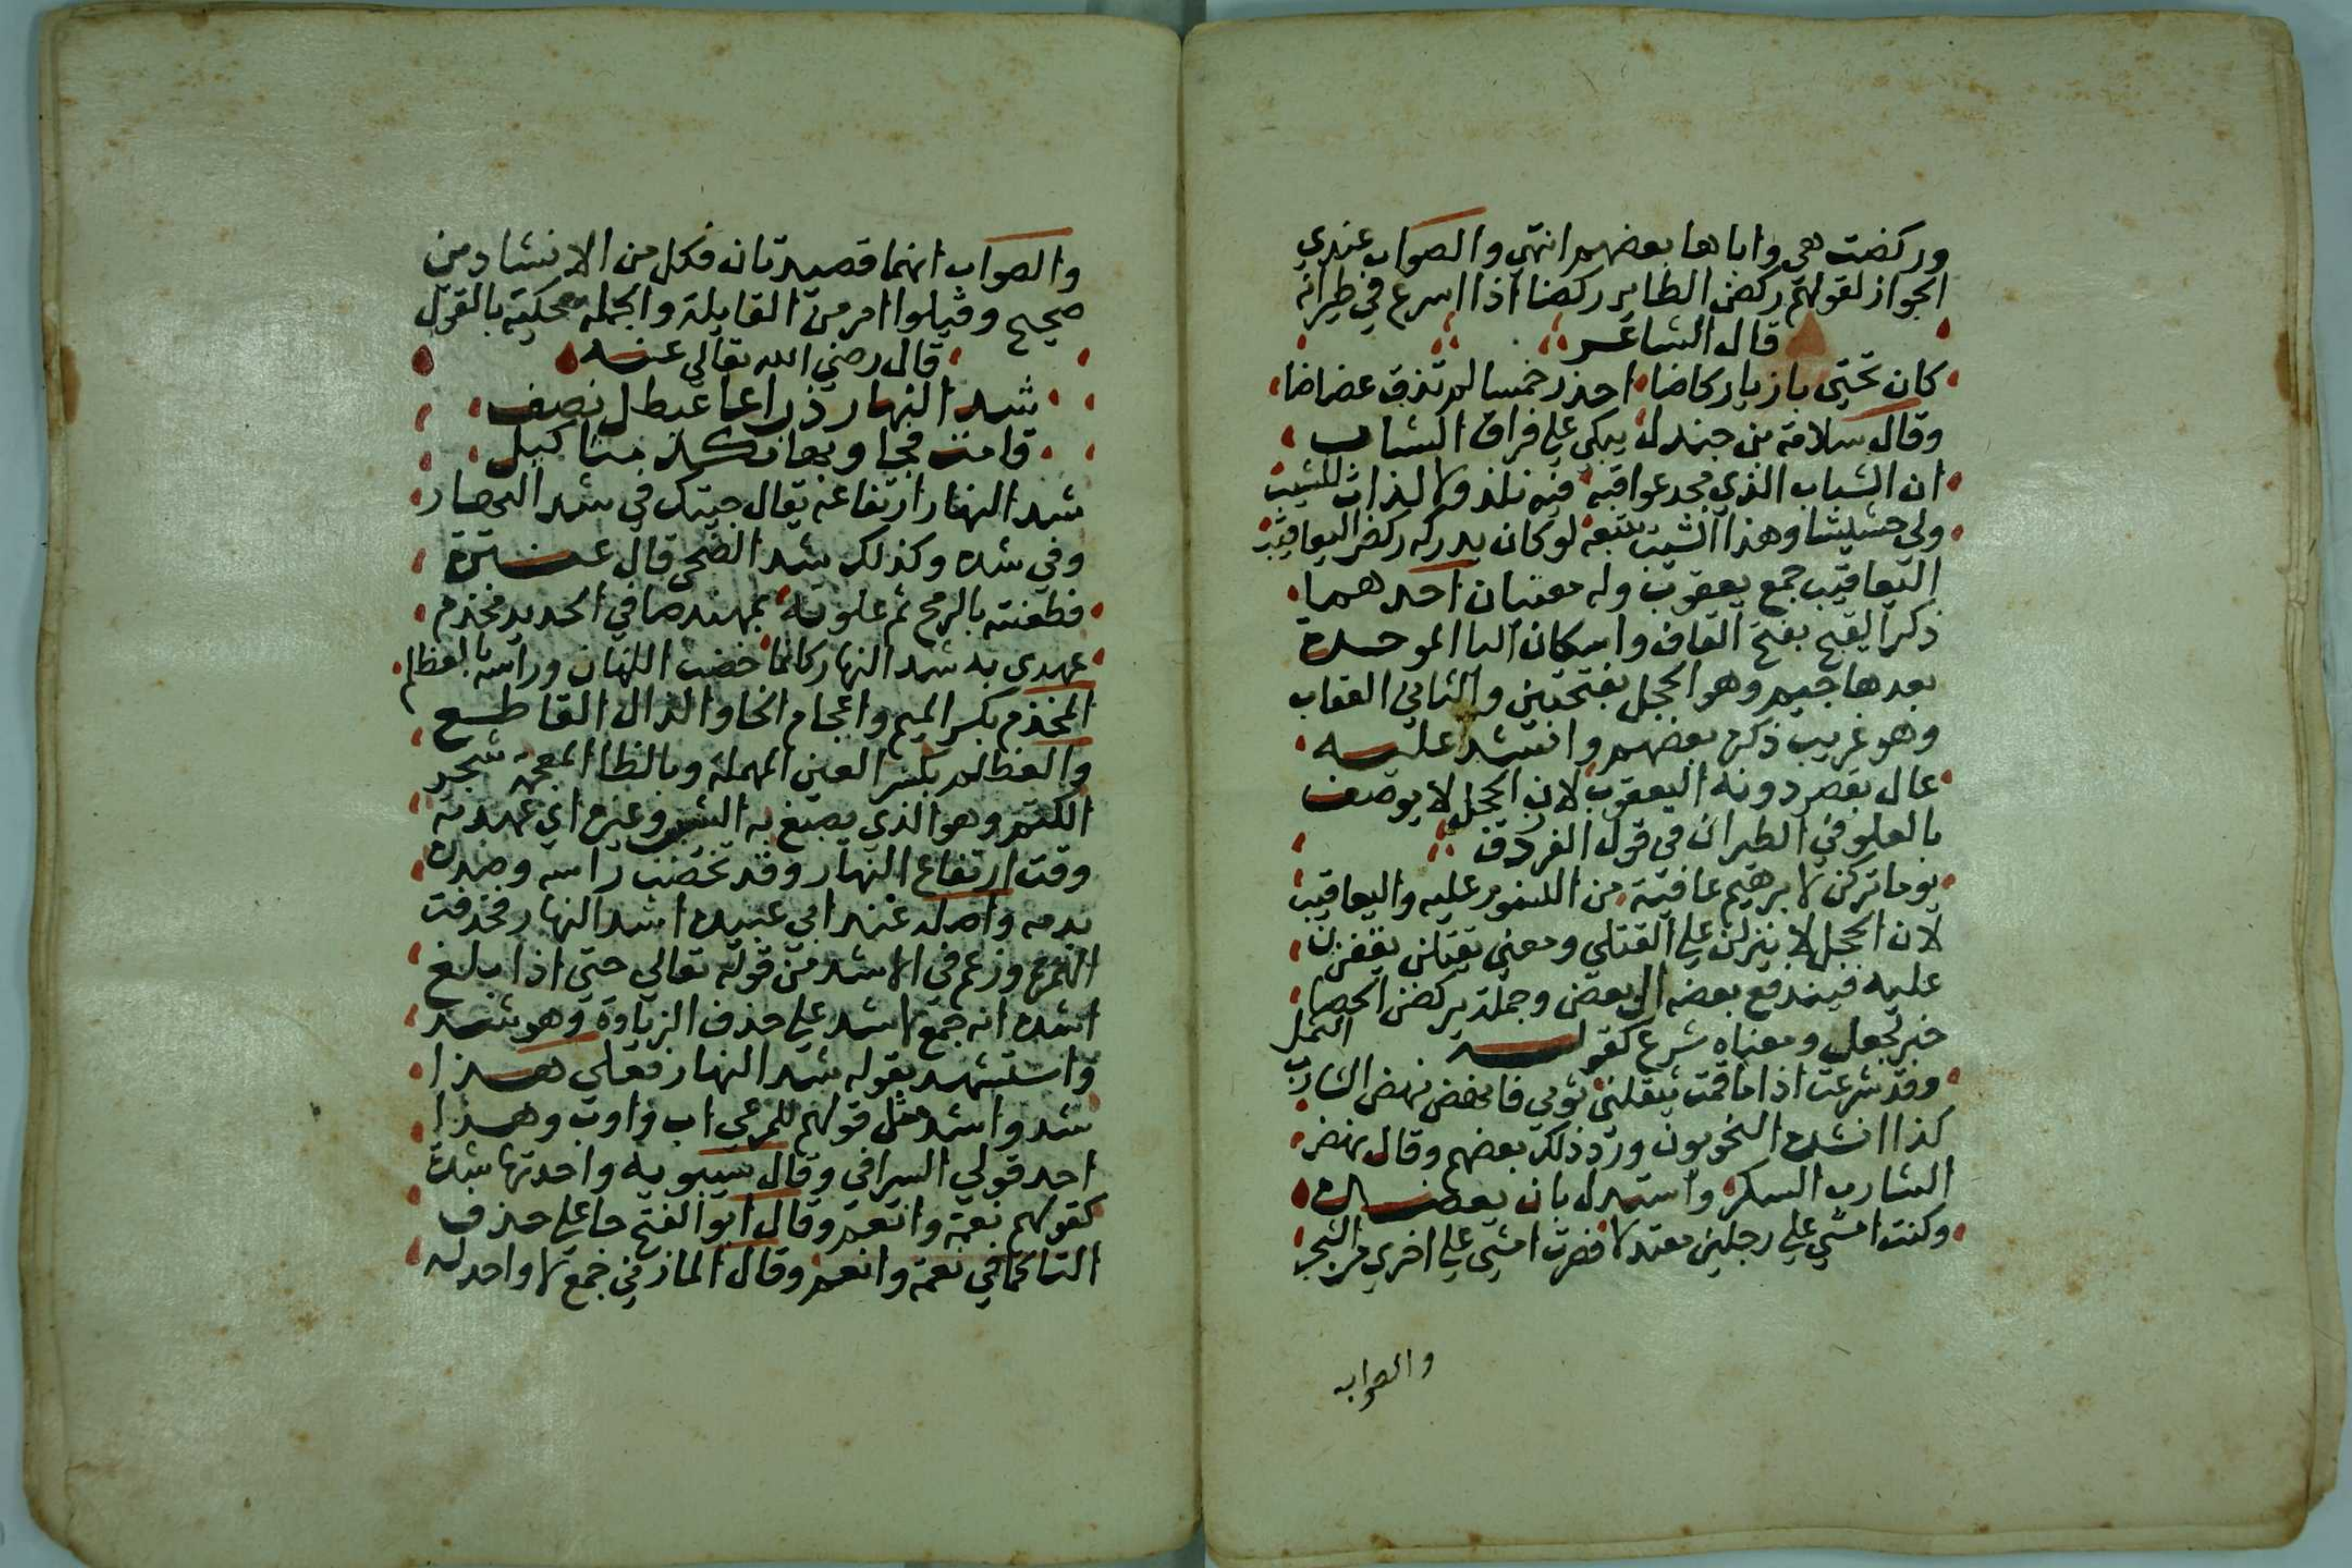 وركضت هي واباها بعضهم انتهي والصواب عندي
الجواز لقولهم ركض الطاير ركضا اذا اسرع في طيرانه
قال الشاعر
كان تحتي بازيا ركاضا احذر خمسا لم تذق عضاضا
وقال سلامة بن جندل يبكي علي فراق الشباب
ان الشباب الذي مجد عواقبه فيه نلذ ولا لذات للشيب
ولي حثيثا وهذا الشيب يتبعه لو كان يدركه ركض اليعاقيب
اليعاقيب جمع يعقوب وله معنيان احدهما
ذكر القبج بفتح القاف واسكان البا الموحدة
بعدها جيم وهو الحجل بفتحتين والثاني العقاب
وهو غريب ذكره بعضهم وانشد عليه
عال يقصر دونه اليعقوب لان الحجل لا يوصف
بالعلو في الطيران في قول الفرزدق
يوما تركن لابرهيم عافية من النسور عليه واليعاقيب
لان الحجل لا ينزلن علي القتلي ومعني يقتلن يقفزن
عليه فيندفع بعضه الي بعض وجملة يركضن الحصا
خبر لجعل ومعناه شرع كقوله
وقد شرعت اذا ما قمت يثقلني ثوبي فانهض نهض الشارب الثمل
كذا انشده النحويون ورد ذلك بعضهم وقال نهض
الشارب السكر واستدل بان بعضله
وكنت امشي علي رجلين معتدلا فصرت امشي علي اخري من الشجر
والصواب
والصواب انهما قصيدتان فكل من الانشادين
صحيح وقيلوا امر من القايلة والجملة محكية بالقول
قال رضي الله تعالي عنه
شد النهار ذراعا عيطل نصف
قامت فجاوبها نكد مثاكيل
شد النهار ارتفاعه يقال جيتك في شد النهار
وفي شده وكذلك شد الضحي قال عنترة
فطعنته بالرمح ثم علوته بمهند صافي الحديد مخذم
عهدي به شد النهار كانما خضب اللبان وراسه بالعظلم
المخذم بكسر الميم واعجام الخا والذال القاطع
والعظلم بكسر العين المهملة وبالظا المعجمة شجر
الكتم وهو الذي يصبغ به الشيب وغيره اي عهدته
وقت ارتفاع النهار وقد تخضب راسه وصدره
بدمه واصله عند ابي عبيدة اشد النهار فحذفت
الهمزة وزعم في الاشد من قوله تعالي حتي اذا بلغ
اشده انه جمع لاشد علي حذف الزيادة وهو شد
واستشهد بقوله شد النهار فعلي هذا
شد واشد مثل قولهم للمرعي اب واوب وهذا
احد قولي السرافي وقال سيبويه واحدتها شدة
كقولهم نعمة وانعم وقال ابو الفتح جا علي حذف
التا كما في نعمة وانعم وقال المازني جمع لا واحد له